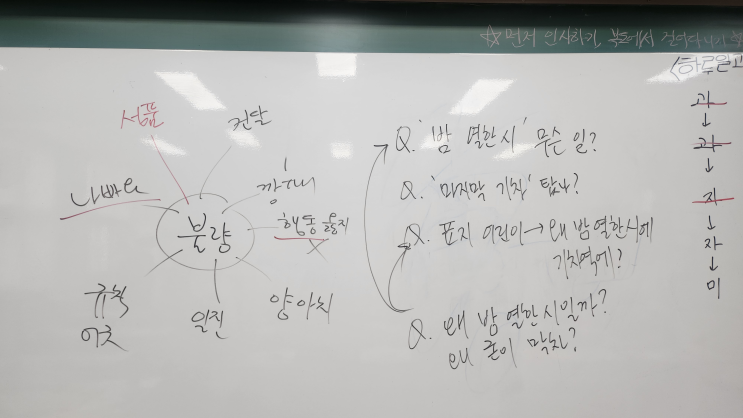 ☆먼저 인사하기, 복도에서 걸어다니기
<하루일과
서품
건달
나빠요
깡패
불량
행동 옳지
X
규칙
어긋
일진
양아치
Q. '밤 열한시' 무슨 일?
Q. '마지막 기차' 탔나?
Q. 표지 어린이→왜 밤 열한시에
기차역에?
Q. 왜 밤 열한시일까?
왜 문이 닫혔?
과
↓
과
↓
자
↓
자
↓
미